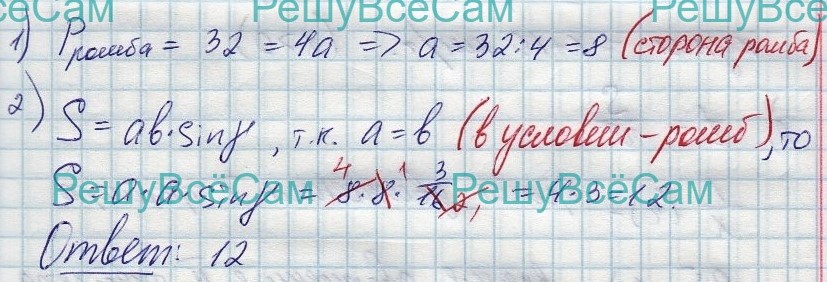 РешуВсёСам РешуВсёСам
1) Pромба = 32 = 4a => a = 32:4 = 8 (сторона ромба)
2) S = ab·sinγ, т.к. a = b (в условии - ромб), то
S = a·a sinγ = 8·8· 3/16 = 4·3 = 12.
РешуВсёСам РешуВсёСам
Ответ: 12